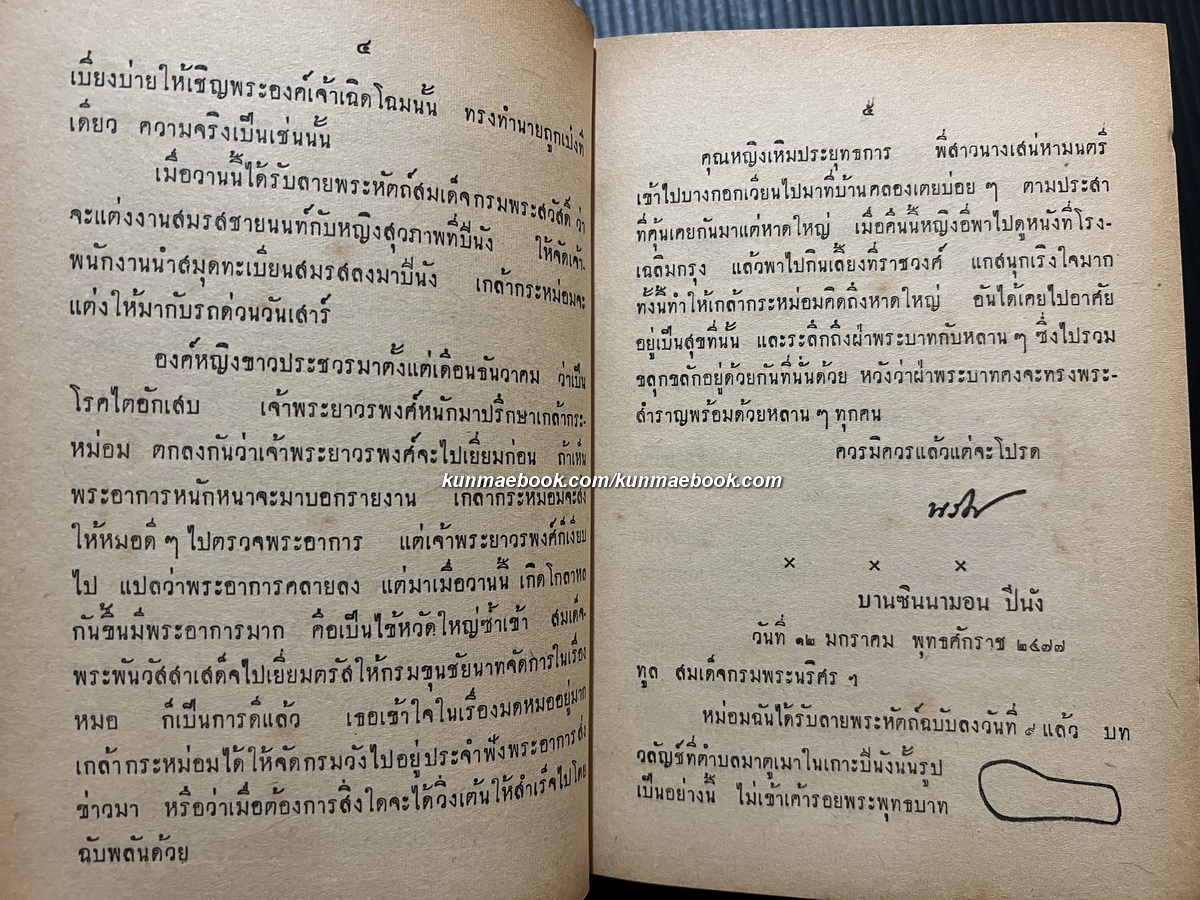 ๔
เบี่ยงบ่ายให้เชิญพระองค์เจ้าเฉิดโฉมนั้น ทรงทำนายถูกเป่งที
เดียว ความจริงเป็นเช่นนั้น
เมื่อวานนี้ได้รับลายพระหัตถ์สมเด็จกรมพระสวัสดิ์ ว่า
จะแต่งงานสมรสชายนนท์กับหญิงสุวภาพที่ปีนัง ให้จัดเจ้า-
พนักงานนำสมุดทะเบียนสมรสลงมาปีนัง เกล้ากระหม่อมจะ
แต่งให้มากับรถด่วนวันเสาร์
องค์หญิงขาวประชวรมาตั้งแต่เดือนธันวาคม ว่าเป็น
โรคไตอักเสบ เจ้าพระยาวรพงศ์หนักมาปรึกษาเกล้ากระ-
หม่อม ตกลงกันว่าเจ้าพระยาวรพงศ์จะไปเยี่ยมก่อน ถ้าเห็น
พระอาการหนักหนาจะมาบอกรายงาน เกล้ากระหม่อมจะส่ง
ให้หมอดี ๆ ไปตรวจพระอาการ แต่เจ้าพระยาวรพงศ์ก็เงียบ
ไป แปลว่าพระอาการคลายลง แต่มาเมื่อวานนี้ เกิดโกลาหล
กันขึ้นมีพระอาการมาก คือเป็นไข้หวัดใหญ่ซ้ำเข้า สมเด็จ-
พระพันวัสสาเสด็จไปเยี่ยมตรัสให้กรมขุนชัยนาทจัดการในเรื่อง
หมอ ก็เป็นการดีแล้ว เธอเข้าใจในเรื่องมดหมออยู่มาก
เกล้ากระหม่อมได้ให้จัดกรมวังไปอยู่ประจำฟังพระอาการส่ง
ข่าวมา หรือว่าเมื่อต้องการสิ่งใดจะได้วิ่งเต้นให้สำเร็จไปโดย
ฉับพลันด้วย
๕
คุณหญิงเหิมประยุทธการ พี่สาวนางเสน่หามนตรี
เข้าไปบางกอกเวียนไปมาที่บ้านคลองเตยบ่อย ๆ ตามประสา
ที่คุ้นเคยกันมาแต่หาดใหญ่ เมื่อคืนนี้หญิงอี่พาไปดูหนังที่โรง-
เฉลิมกรุง แล้วพาไปกินเลี้ยงที่ราชวงศ์ แกสนุกเริงใจมาก
ทั้งนี้ทำให้เกล้ากระหม่อมคิดถึงหาดใหญ่ อันได้เคยไปอาศัย
อยู่เป็นสุขที่นั้น และระลึกถึงฝ่าพระบาทกับหลาน ๆ ซึ่งไปรวม
ขลุกขลักอยู่ด้วยกันที่นั่นด้วย หวังว่าฝ่าพระบาทคงจะทรงพระ-
สำราญพร้อมด้วยหลาน ๆ ทุกคน
ควรมิควรแล้วแต่จะโปรด
kunmaebook.com/kunmaebook.com
× × ×
บานซินนามอน ปีนัง
วันที่ ๑๒ มกราคม พุทธศักราช ๒๔๗๗
ทูล สมเด็จกรมพระนริศร ฯ
หม่อมฉันได้รับลายพระหัตถ์ฉบับลงวันที่ ๙ แล้ว บท
วลัญช์ที่ตำบลมาตูเมาในเกาะปีนังนั้นรูป
เป็นอย่างนี้ ไม่เข้าเค้ารอยพระพุทธบาท